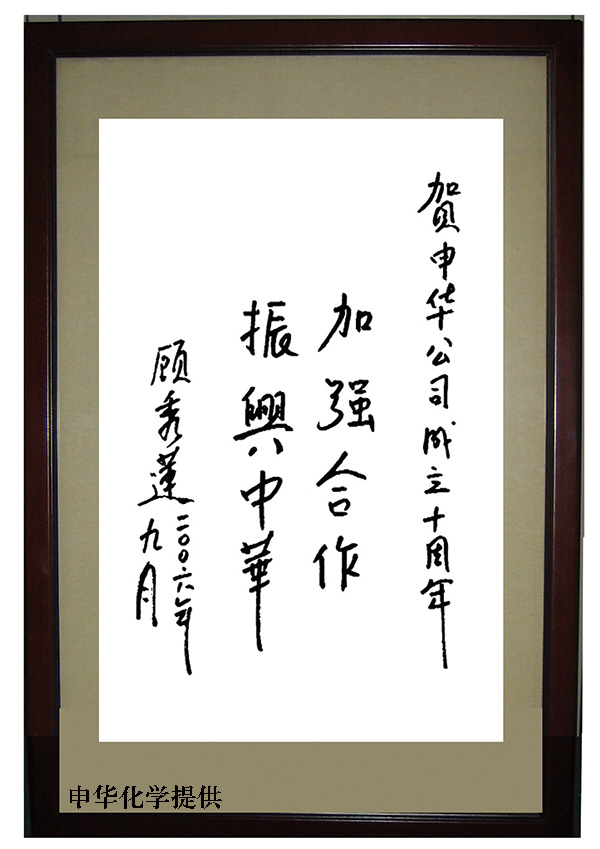 贺申华公司成立十周年
加强合作
振興中華
顾秀蓮
二００六年
九月
申华化学提供